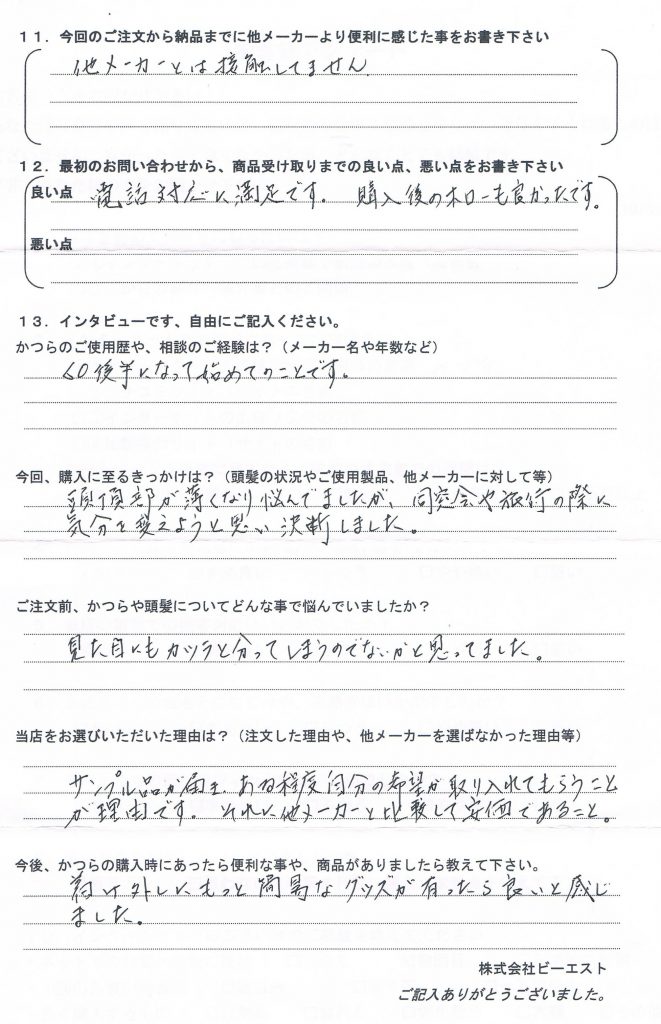 11．今回のご注文から納品までに他メーカーより便利に感じた事をお書き下さい
他メーカーとは接触してません.
12．最初のお問い合わせから、商品受け取りまでの良い点、悪い点をお書き下さい
良い点 電話対応に満足です。 購入後のホローも良かったです。
悪い点
13．インタビューです、自由にご記入ください。
かつらのご使用歴や、相談のご経験は？（メーカー名や年数など）
60後半になって始めてのことです。
今回、購入に至るきっかけは？（頭髪の状況やご使用製品、他メーカーに対して等）
頭頂部が薄くなり悩んでましたが、同窓会や旅行の際に
気分を変えようと思い決断しました。
ご注文前、かつらや頭髪についてどんな事で悩んでいましたか？
見た目にもカツラと分ってしまうのでないかと思ってました。
当店をお選びいただいた理由は？（注文した理由や、他メーカーを選ばなかった理由等）
サンプル品が届き、ある程度自分の希望が取り入れてもらうこと
が理由です。それに他メーカーと比較して安価であること。
今後、かつらの購入時にあったら便利な事や、商品がありましたら教えて下さい。
着け外しにもっと簡易なグッズが有ったら良いと感じ
ました。
株式会社ビーエスト
ご記入ありがとうございました。